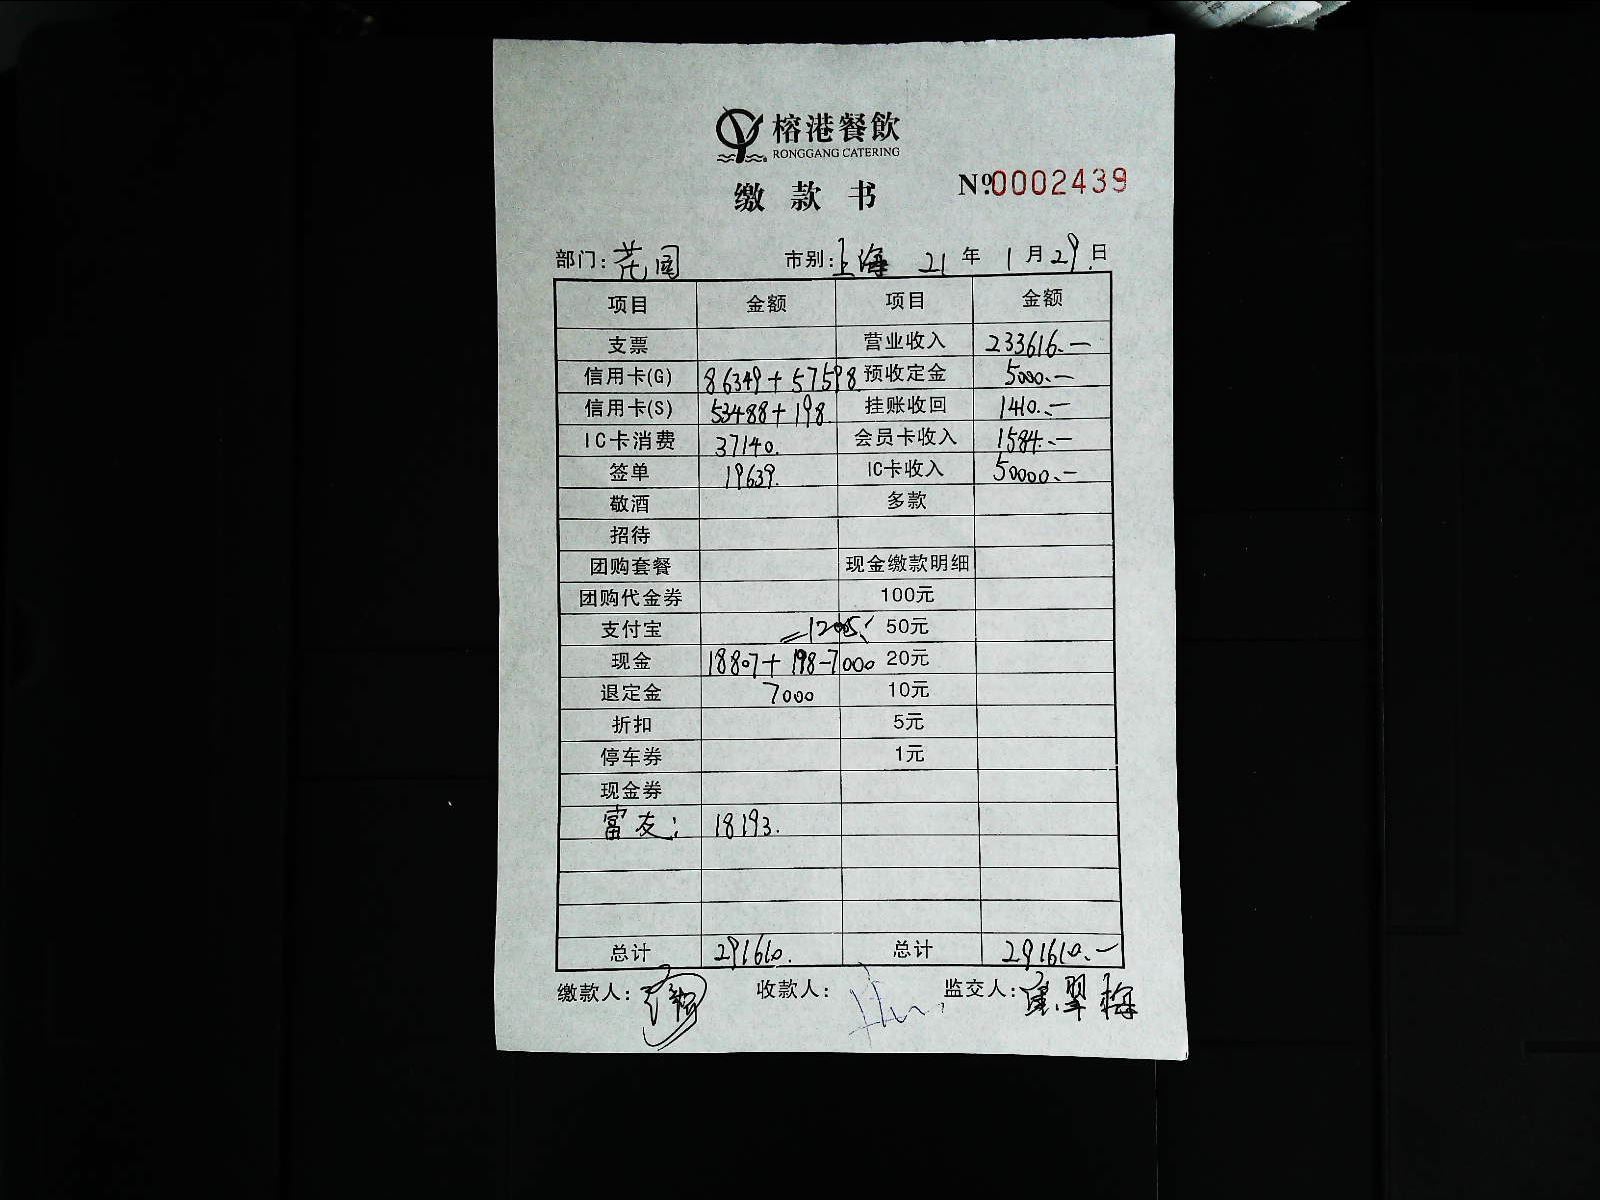 榕港餐飲
RONGGANG CATERING
缴款书
Nº 0002439
部门: 花园 市别: 上海 21 年 1 月 29 日
项目 金额 项目 金额
支票 营业收入 233616.—
信用卡(G) 86349+57598 预收定金 5000.—
信用卡(S) 53488+198 挂账收回 1410.—
IC卡消费 37140. 会员卡收入 1584.—
签单 19639. IC卡收入 50000.—
敬酒 多款
招待
团购套餐 现金缴款明细
团购代金券 100元
支付宝 =12005 50元
现金 18807+198-7000 20元
退定金 7000 10元
折扣 5元
停车券 1元
现金券
富友: 18193.
总计 291610. 总计 291610.—
缴款人: 收款人: 监交人: